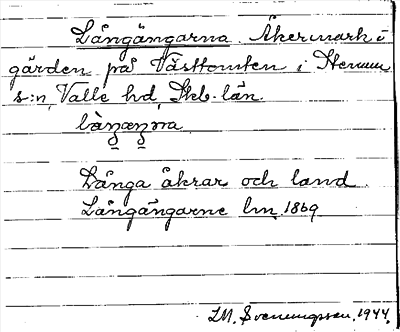 Långängarna. Åkermark i
gärden på Västtomten i Stenum
s:n, Valle hd, Skb. län.
Långa åkrar och land.
Långängarne lm 1869
LM. Svenungsson. 1944.